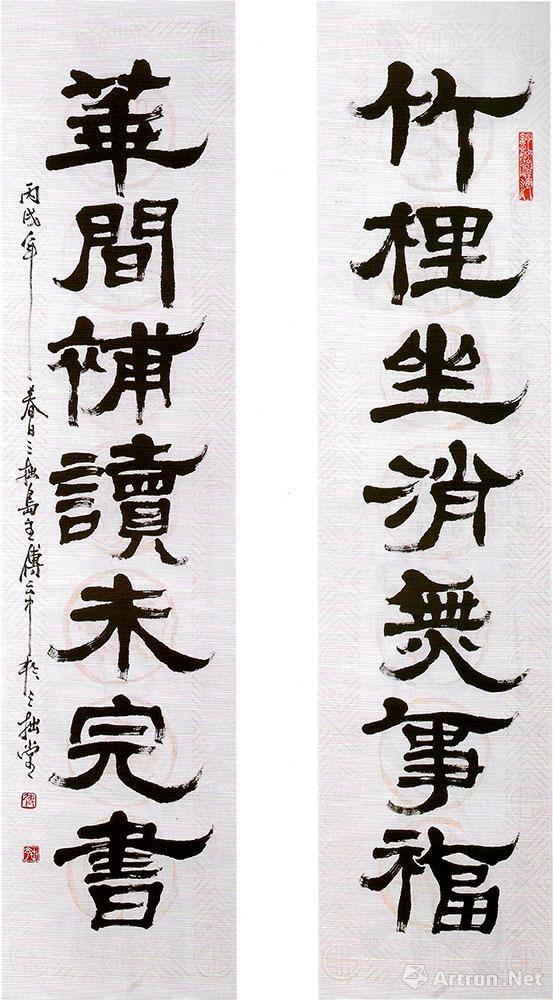 竹裡坐消無事福
華間補讀未完書
丙戌年春日三拙島主傅於三拙堂
Artron.Net